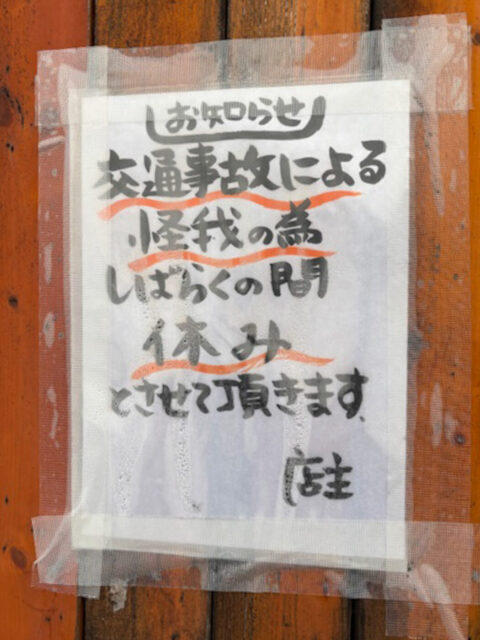 お知らせ
交通事故による
怪我の為
しばらくの間
休み
とさせて頂きます、
店主